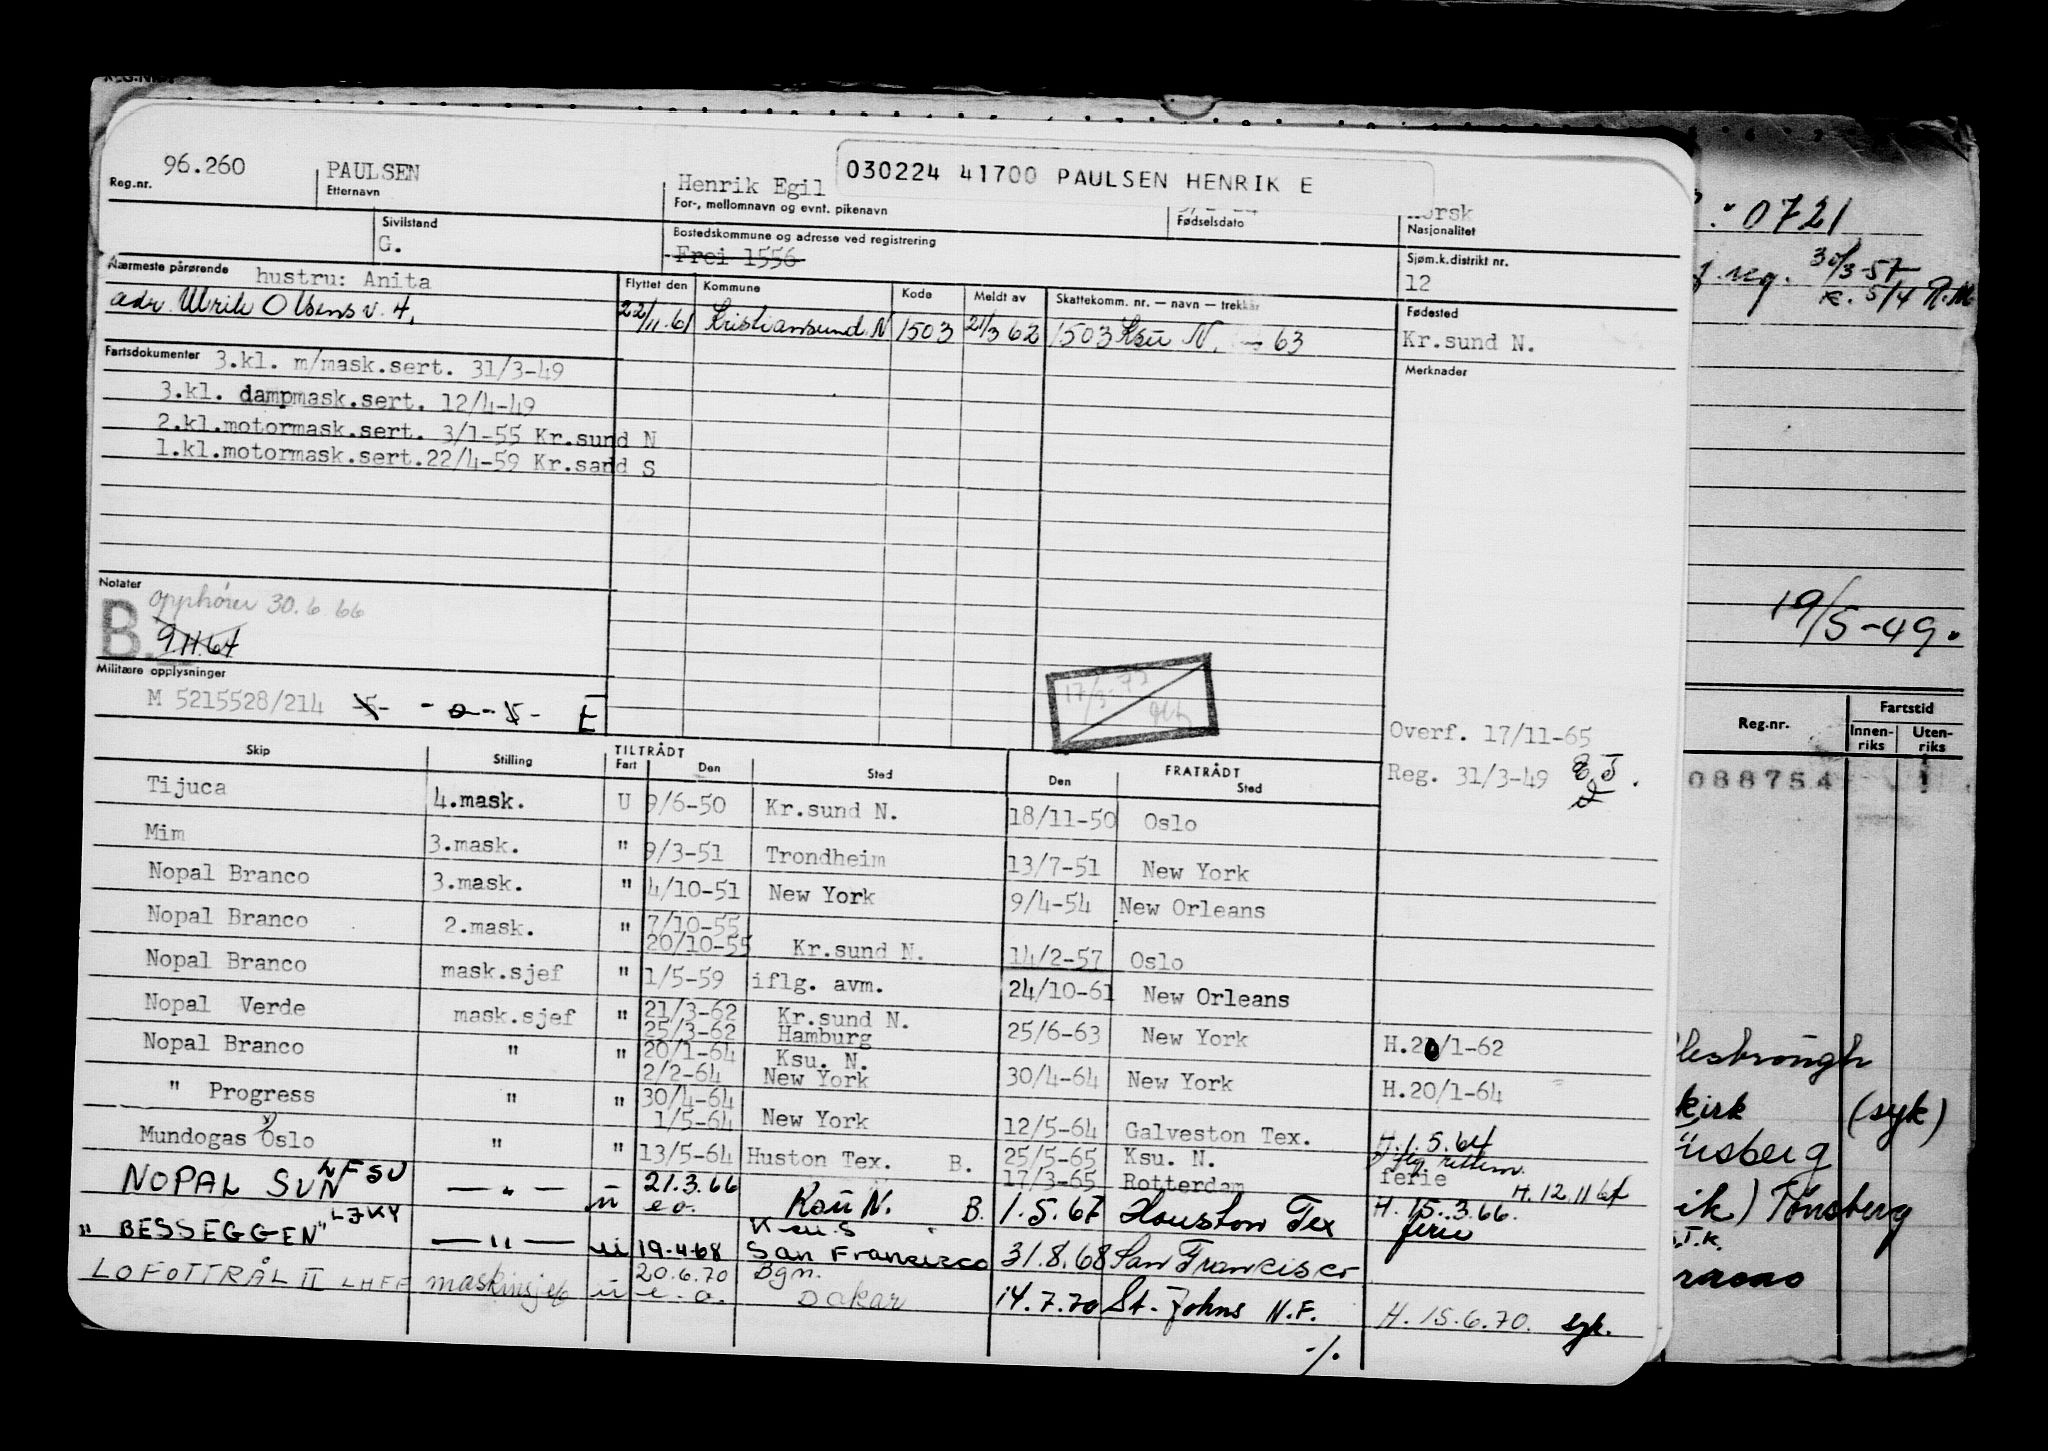 030224 41700 PAULSEN HENRIK E
96.260 PAULSEN Henrik Egil Norsk
Reg.nr. Etternavn For-, mellomnavn og evnt. pikenavn Fødselsdato Nasjonalitet
Sivilstand Bostedskommune og adresse ved registrering Sjøm.k.distrikt nr.
G. Frei 1556 12
Nærmeste pårørende hustru: Anita Flyttet den Kommune Kode Meldt av Skattekomm. nr. — navn — trekkår Fødested
adr. Ulrik Olsens v. 4, 22/11.61 Kristiansund N 1503 21/3 62 1503 Ksu N. 63 Kr.sund N.
Fartsdokumenter 3.kl. m/mask.sert. 31/3-49 Merknader
3.kl. dampmask.sert. 12/4-49
2.kl.motormask.sert. 3/1-55 Kr.sund N
1.kl.motormask.sert.22/4-59 Kr.sand S
Notater
B. opphører 30.6.66
9.11.64
Militære opplysninger
M 5215528/214 E
17/3-73
Overf. 17/11-65
Reg. 31/3-49
Skip Stilling TILTRÅDT FRATRÅDT
Fart Den Sted Den Sted
Tijuca 4.mask. U 9/6-50 Kr.sund N. 18/11-50 Oslo
Mim 3.mask. " 9/3-51 Trondheim 13/7-51 New York
Nopal Branco 3.mask. " 4/10-51 New York 9/4-54 New Orleans
Nopal Branco 2.mask. " 7/10-55
20/10-55 Kr.sund N. 14/2-57 Oslo
Nopal Branco mask.sjef " 1/5-59 iflg. avm. 24/10-61 New Orleans
Nopal Verde mask.sjef " 21/3-62 Kr.sund N.
25/3-62 Hamburg 25/6-63 New York H.20/1-62
Nopal Branco " " 20/1-64 Ksu. N.
2/2-64 New York 30/4-64 New York H.20/1-64
" Progress " " 30/4-64
1/5-64 New York 12/5-64 Galveston Tex. H.1.5.64
Mundogas Oslo " " 13/5-64 Huston Tex. B. 25/5-65 Ksu. N.
17/3-65 Rotterdam ferie H.12.11.64
NOPAL SUN LFSU — " — u 21.3.66
e.o. Ksu N. B. 1.5.67 Houston Tex H. 15.3.66. ferie
"BESSEGGEN" LJKY — " — u 19.4.68 K.su.S
San Francisco 31.8.68 San Francisco
LOFOTTRÅL II maskinsjef u 20.6.70 Bgn.
e.o. Dakar 14.7.70 St. Johns N.F. H. 15.6.70. syk.
./.
0721
reg. 30/3-57
K. 5/4
19/5-49.
Reg.nr. Fartstid
Innenriks Utenriks
088754
kirk (syk)
ik) Tønsberg